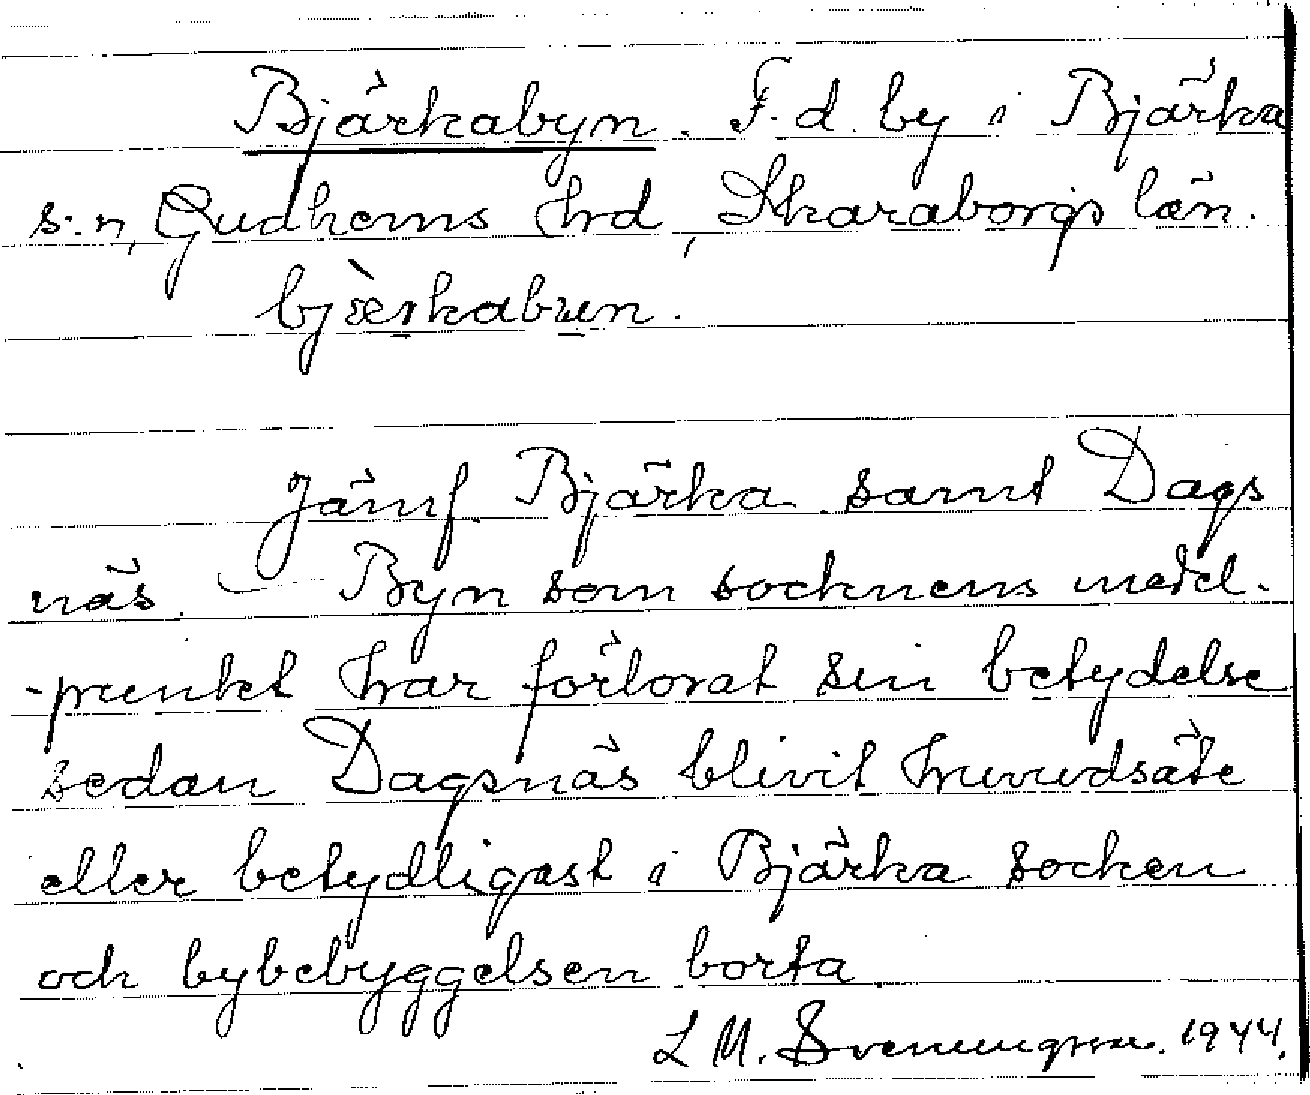 Bjärkabyn. F.d. by i Bjärka
s:n, Gudhems hrd, Skaraborgs län.
bjærkabun.
Jämf Bjärka samt Dags
näs. — Byn som socknens medel-
-punkt har förlorat sin betydelse
sedan Dagsnäs blivit huvudsäte
eller betydligast i Bjärka socken
och bybebyggelsen borta
L M. Svenungsson. 1944.